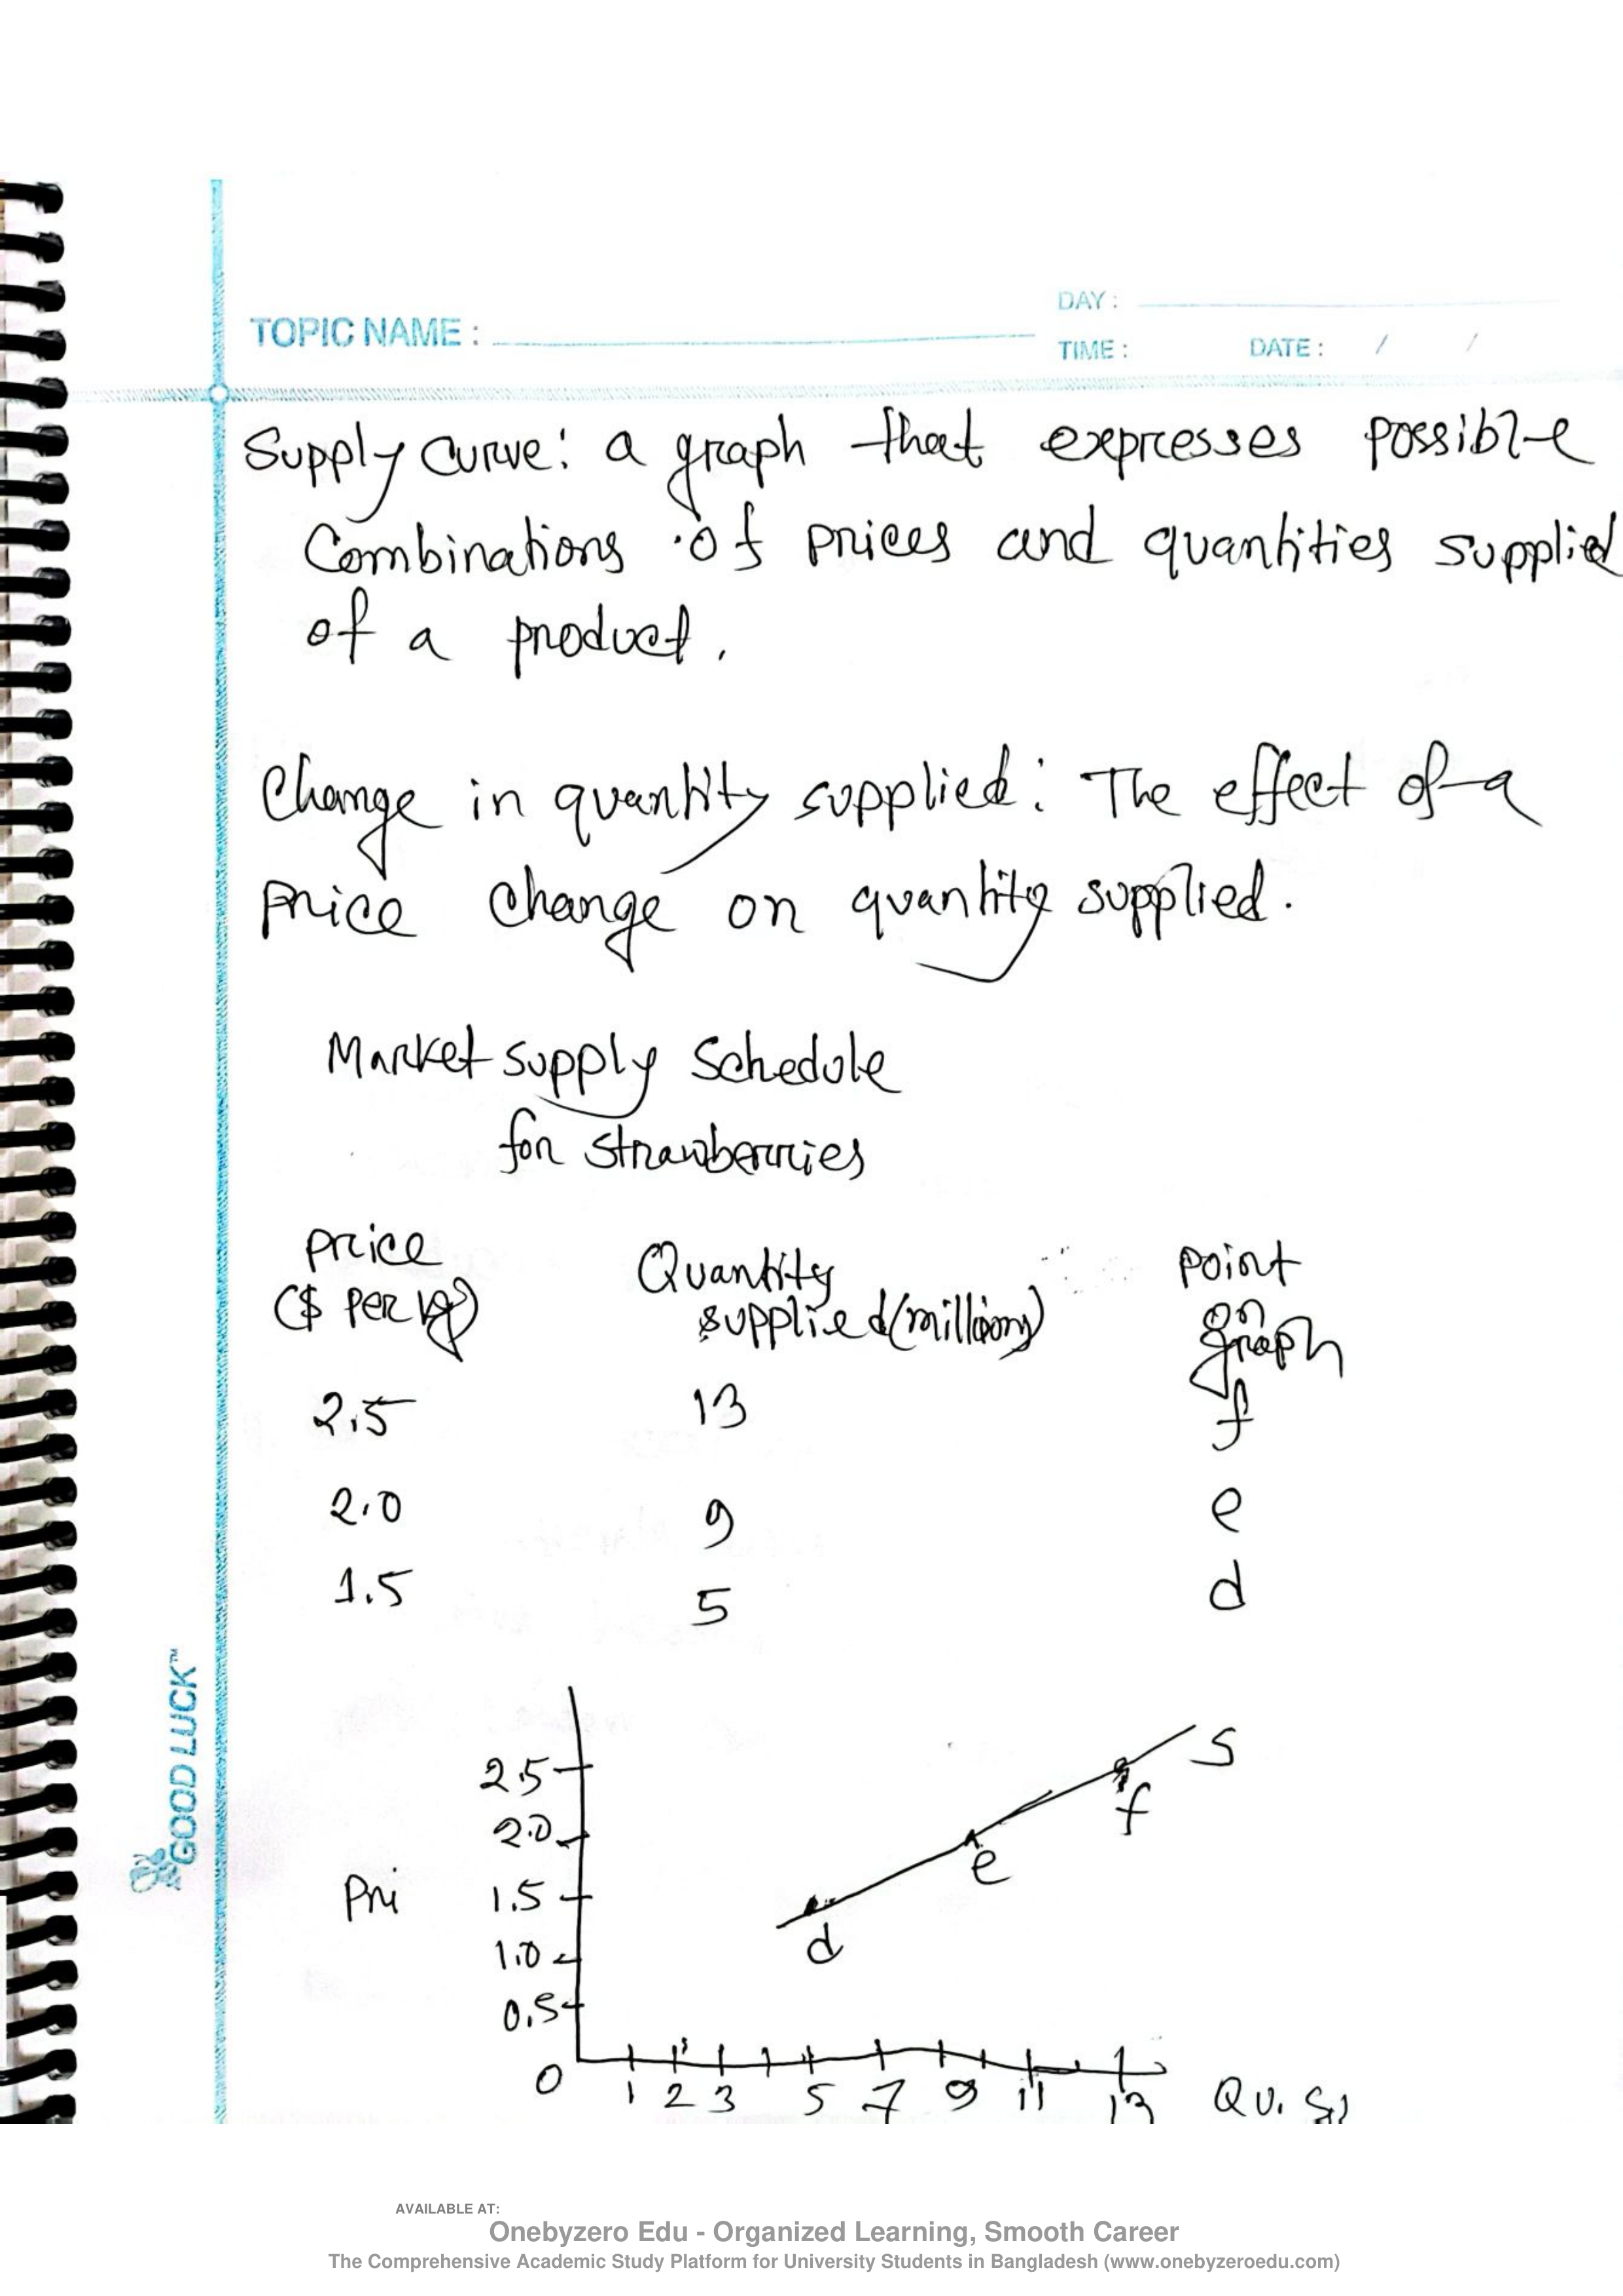 DAY :
TOPIC NAME :
TIME : DATE : / /
Supply curve: a graph that expresses possible
Combinations of prices and quantities supplied
of a product.
Change in quantity supplied: The effect of a
price change on quantity supplied.
Market supply schedule
for strawberries
Price Quantity Point
($ per kg) supplied (millions) on
graph
2.5 13 f
2.0 9 e
1.5 5 d
S
2.5
f
2.0
e
Pri 1.5
d
1.0
0.5
0 1 2 3 5 7 9 11 13 Qu. S)
GOOD LUCK™
AVAILABLE AT:
Onebyzero Edu - Organized Learning, Smooth Career
The Comprehensive Academic Study Platform for University Students in Bangladesh (www.onebyzeroedu.com)